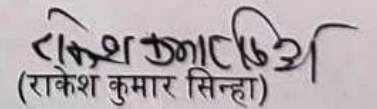 राकेश कुमार सिन्हा
(राकेश कुमार सिन्हा)